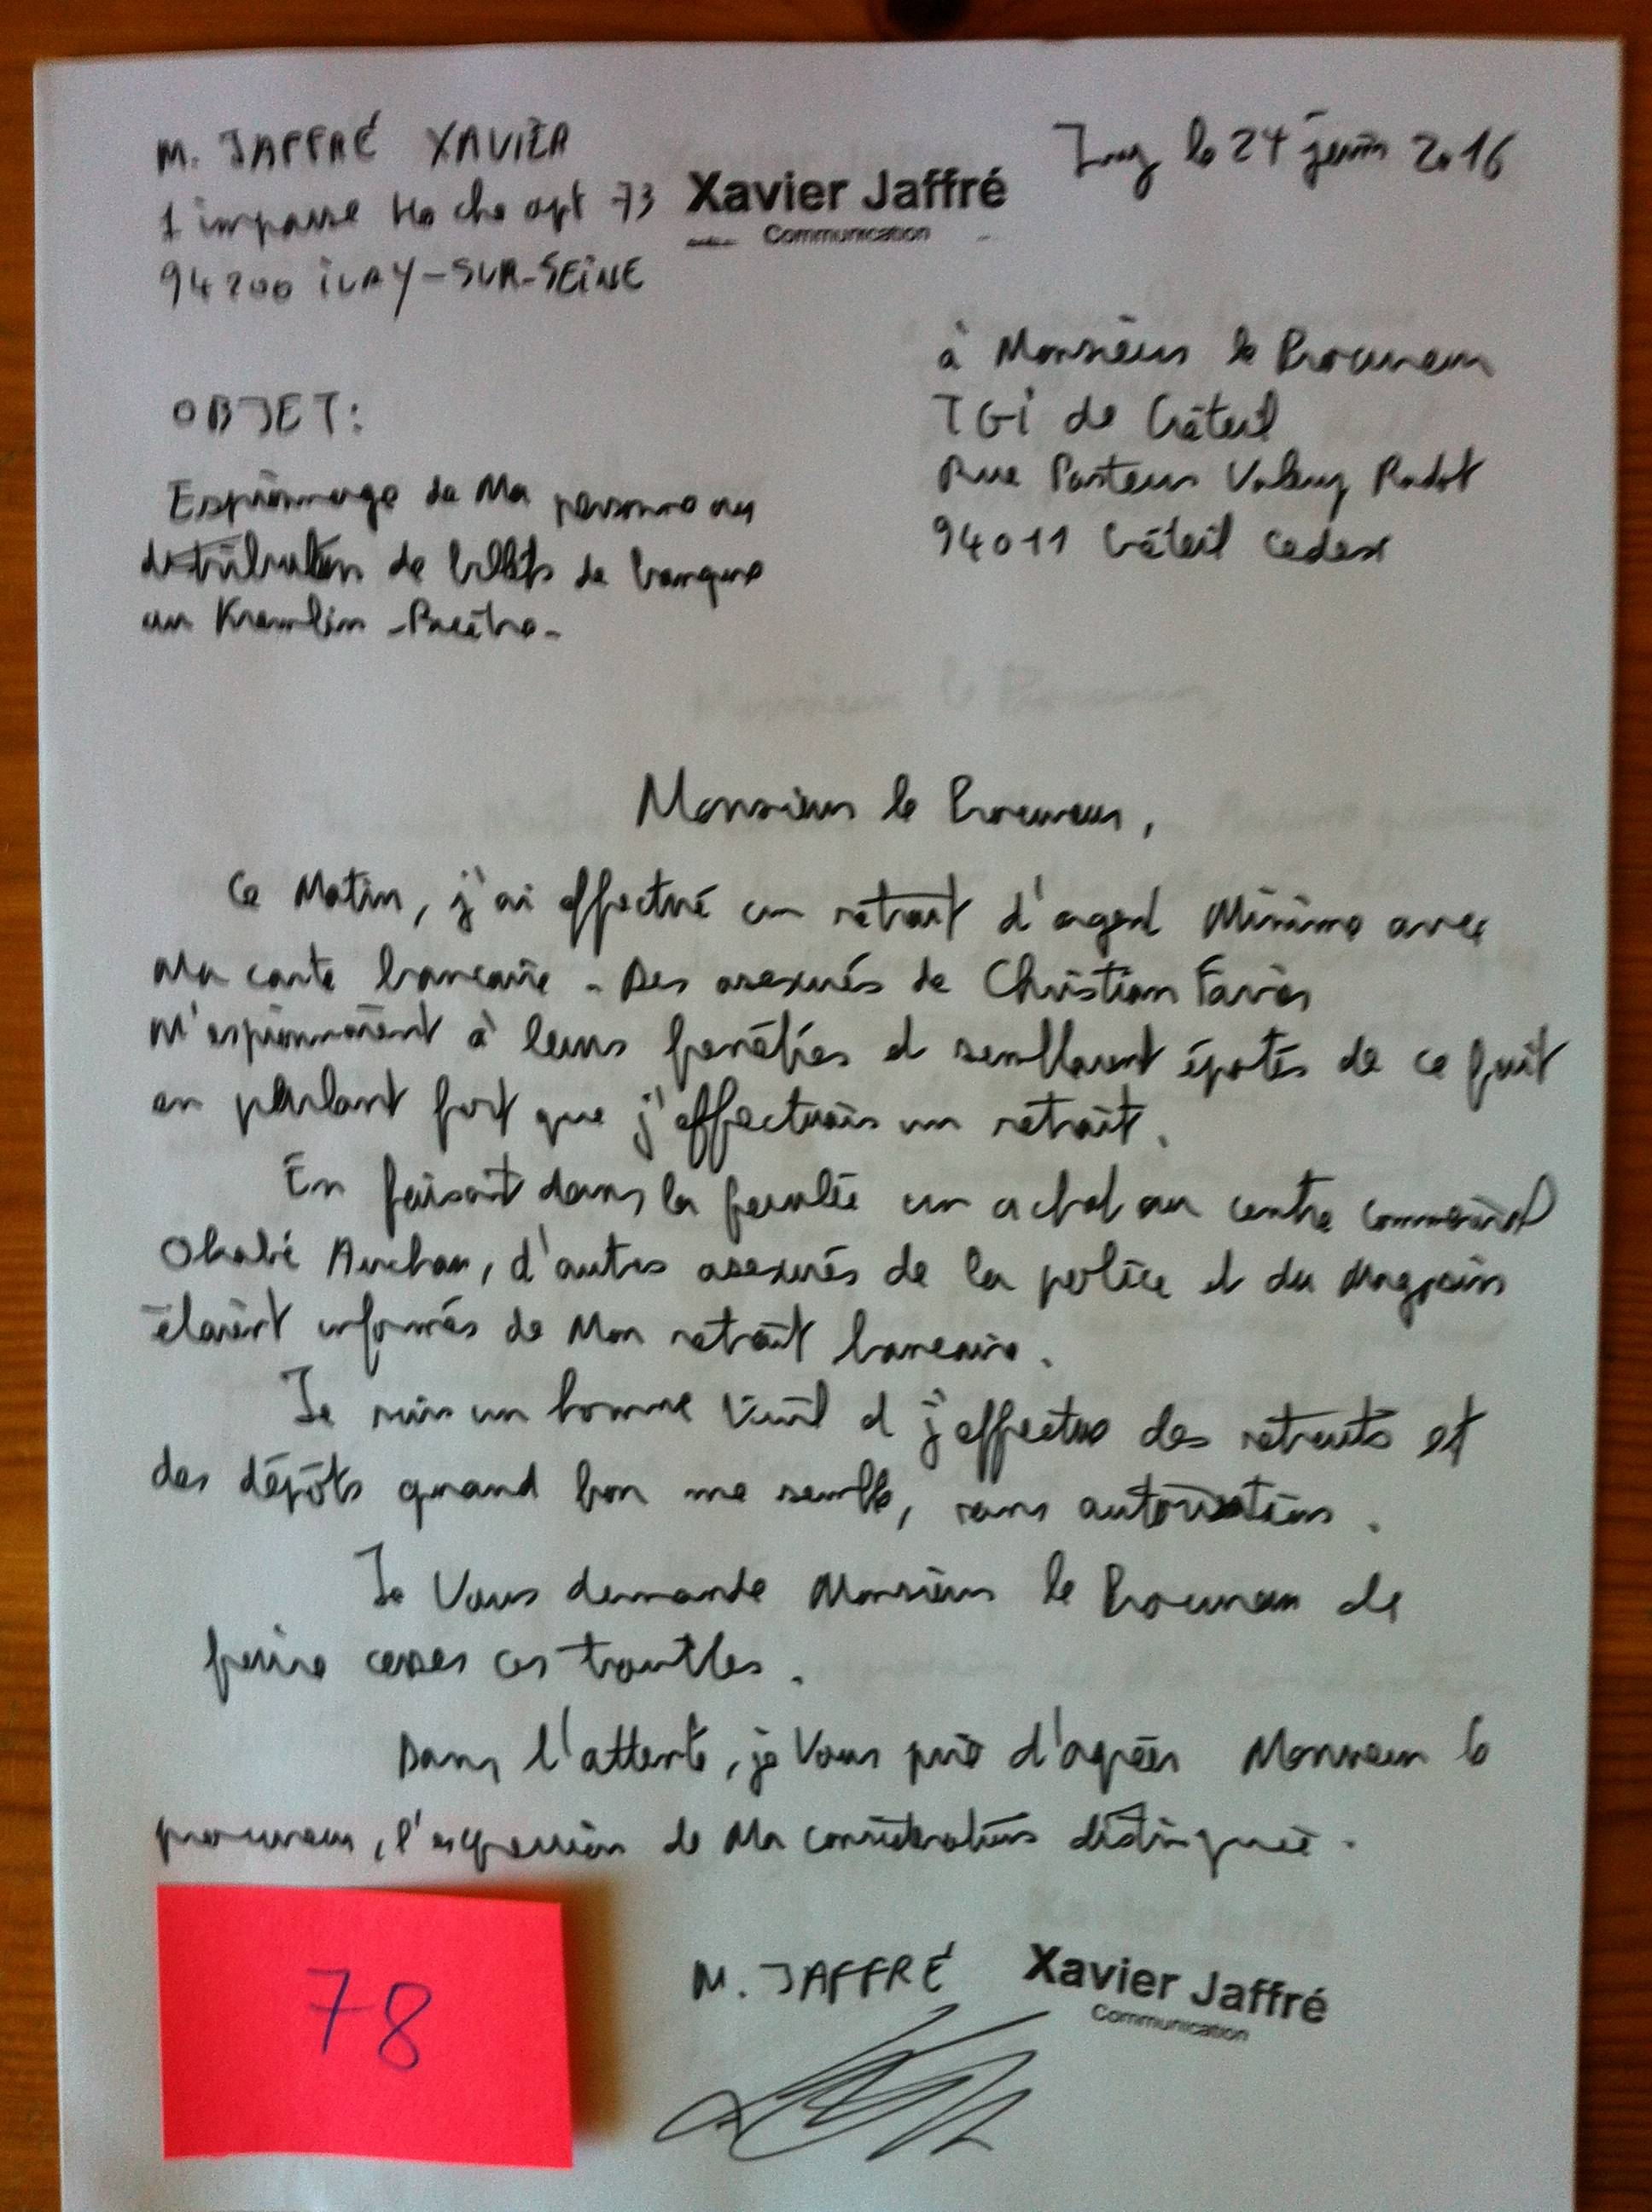 M. JAFFRÉ XAVIER
Ivry le 24 juin 2016
1 impasse Hoche apt 73
Xavier Jaffré
Communication
94200 IVRY-SUR-SEINE
à Monsieur le Procureur
TGI de Créteil
Rue Pasteur Valery Radot
94011 Créteil cedex
OBJET:
Espionnage de Ma personne au
distributeur de billets de banque
au Kremlin-Bicêtre-
Monsieur le Procureur,
Ce Matin, j'ai effectué un retrait d'argent Minime avec
Ma carte bancaire - Des asexués de Christian Favier
M'espionnaient à leurs fenêtres et semblaient épatés de ce fait
en parlant fort que j'effectuais un retrait.
En faisant dans la foulée un achat au centre commercial
Okabé Auchan, d'autres asexués de la police et du Magasin
étaient informés de Mon retrait bancaire.
Je suis un homme Viril et j'effectue des retraits et
des dépôts quand bon me semble, sans autorisation.
Je Vous demande Monsieur le Procureur de
faire cesser ces troubles.
Dans l'attente, je Vous prie d'agréer Monsieur le
procureur, l'expression de Ma considération distinguée.
M. JAFFRÉ
Xavier Jaffré
Communication
78